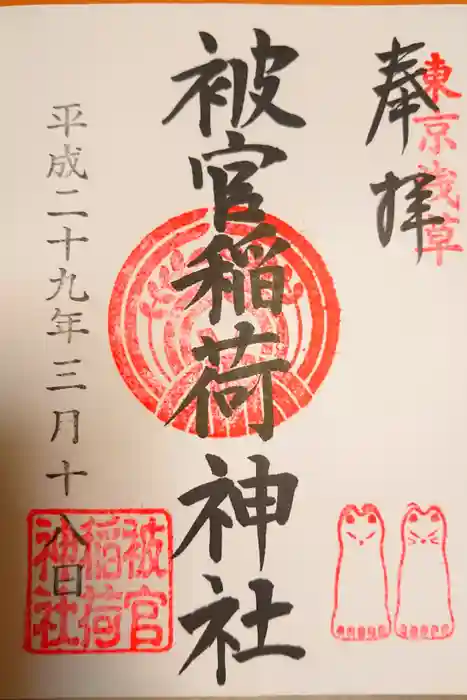 東京浅草
奉拝
被官稲荷神社
平成二十九年三月十八日
被官
稲荷
神社